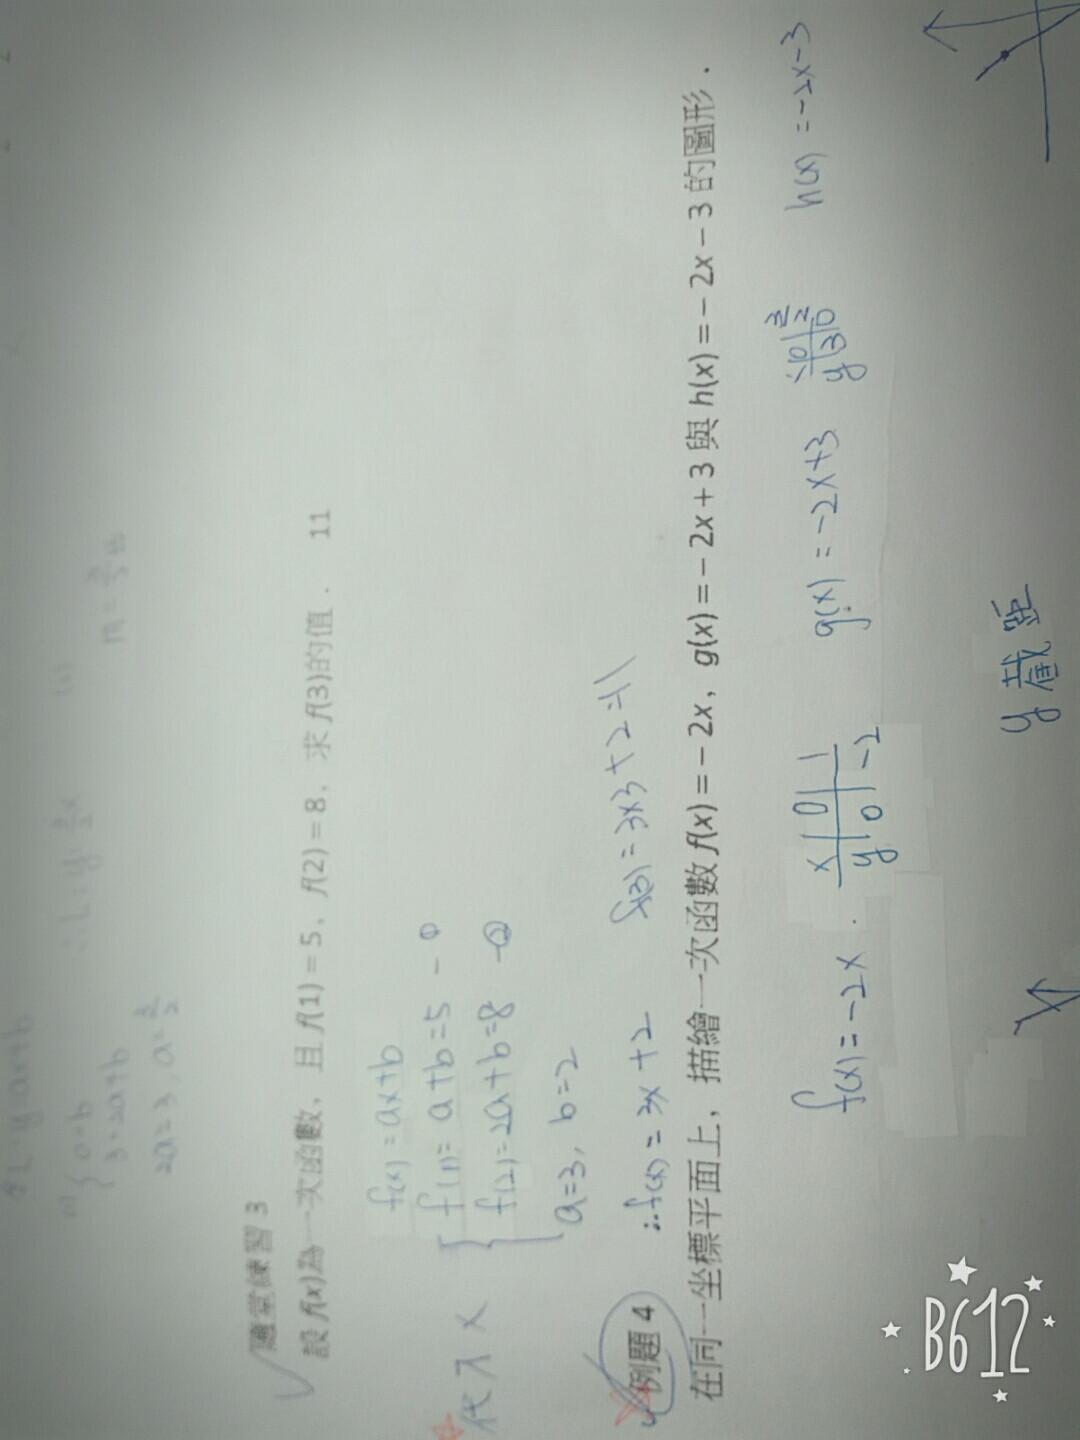 y=ax+b
0=b
3=2a+b
2a=3, a=3/2
隨堂練習 3
設 f(x)為一次函數，且 f(1)=5，f(2)=8，求 f(3)的值． 11
f(x)=ax+b
代入 x
f(1)=a+b=5 -①
f(2)=2a+b=8 -②
a=3, b=2
∴f(x)=3x+2 f(3)=3×3+2=11
例題 4
在同一坐標平面上，描繪一次函數 f(x)=－2x，g(x)=－2x+3 與 h(x)=－2x－3 的圖形．
f(x)=-2x . x 0 1 g(x)=-2x+3 0 3/2 h(x)=-2x-3
y 0 -2 y 3 0
y 截距
B612